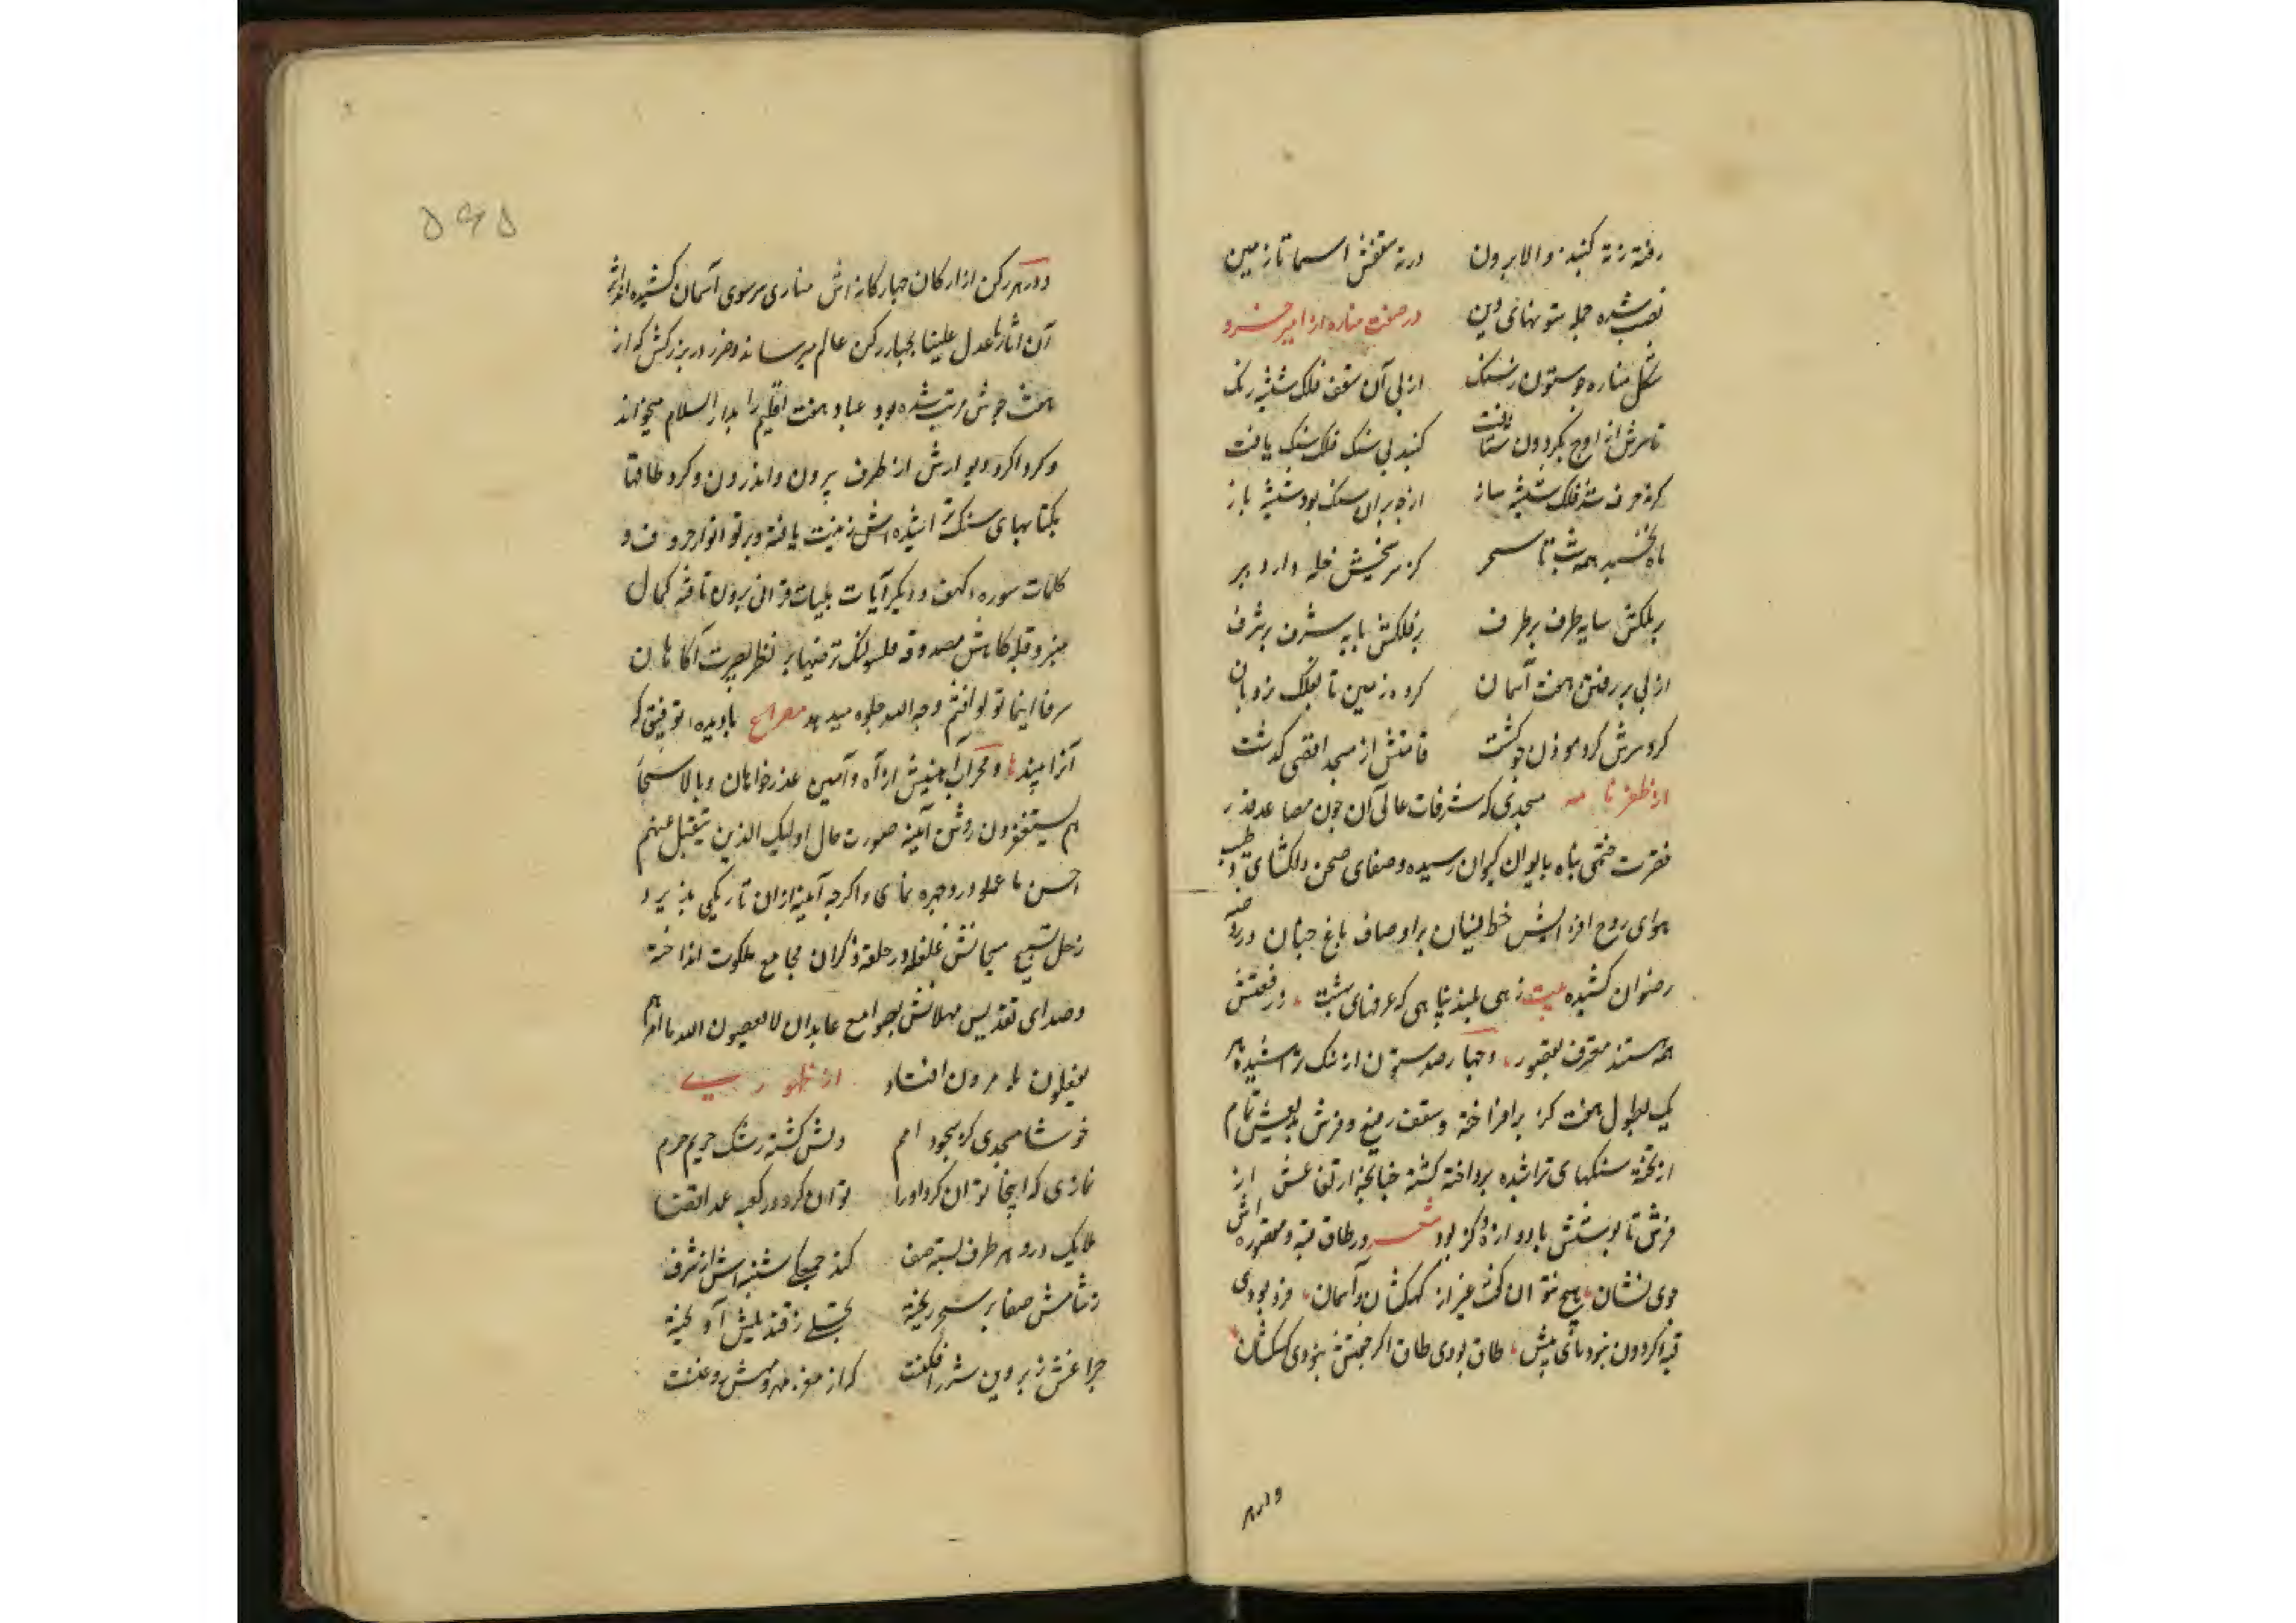 رفته ز نه گنبد والا برون    در ته سقفش ز سما تا زمین
نصب شده جمله ستونهای دین    در صفت مناره از امیر خسرو
شکل مناره چو ستون ز سنگ    از پی آن سقف فلک شیشه رنگ
تا سرش از اوج بگردون شتافت    گنبد بی سنگ فلک سنگ یافت
از بر آن سنگ بود شیشه باز
ماه نخسبد همه شب تا سحر    کز سر سنگش خله دارد ببر
بر ملکش سایه طرف بر طرف    بر فلکش پایه شرف بر شرف
از پی بر رفتن هفت آسمان    کرد ز زمین تا بفلک نردبان
کرد سرش کرد موذن چو گشت    قامتش از مسجد اقصی گذشت
از ظفرنامه مسجدی که شرفات عالی آن چون مصاعد قدر
حضرت ختمی پناه بایوان کیوان رسیده و صفای صحن دلگشای و طیب
هوای روح افزایش خط نسیان بر اوصاف باغ جنان و روضه
رضوان کشیده بیت زهی بلند بنایی که غرفهای بهشت در رفعتش
همه هستند معترف بقصور و چهار صد ستون از سنگ تراشیده هر
یک بطول هفت گز بر افراخته و سقف رفیع و فرش بدیعش تمام
از تخته سنگهای تراشیده پرداخته گشته چنانچه ارتفاعش از
فرش تا پوشش یا دوازده گز بود شعر در طاق قبه و مقصوره اش
موی نشان هیچ نتوان گفت غیر از کهکشان و آسمان فرد بودی
قبه گردون نبودی ثانیش طاق بودی طاق اگر جفتش نبودی کهکشان
و در هر
۵۶۵
و در هر رکن از ارکان چهارگانه اش مناری سر سوی آسمان کشیده
آن آثار عدل علینا بچهار رکن عالم میرساند و در بزرگش که از
هفت جوش مرتب شده بود عباد هفت اقلیم را بدار السلام میخواند
و گرداگرد دیوارش از طرف بیرون و اندرون و گرد طاقها
بکتابهای سنگ تراشیده اش زینت یافته و پرتو انوار حروف و
کلمات سوره کهف و دیگر آیات بینات قرآنی برون تافته کمال
منبر و قبله گاهش مصدوقه فلنولینک قبلة ترضیها بر نظر بصیرت آگاهان
سر فاینما تولوا فثم وجه الله جلوه میدهد مصراع با دیده توفیق که
آنرا بیند و محراب آهنینش از آه و آمین عذرخواهان و بالاسحار
هم یستغفرون روشن آیینه صورت حال اولئک الذین یتقبل عنهم
احسن ما عملوا در و چهره نمای و اگرچه آیینه از آن تاریکی پذیرد
زجل تسبیح سبحانش غلغله در حلقه ذاکران مجامع ملکوت انداخته
و صدای تقدیس مهللانش بصوامع عابدان لا یعصون الله ما امرهم
یفعلون ما یومرون افتاد    از ظهوری
خوشا مسجدی کز سجود امم    دلش گشته رشک حریم حرم
نمازی که اینجا توان کرد ادا    توان کرد در کعبه عمدا قضا
ملایک درو هر طرف بسته صف    کند جمعگی شنبه اش از شرف
ز شامش صفا بر سحر ریخته    تجلی ز قندیلش آویخته
چراغش ز پروین شرر افکنست    که از مغز مه روشنش روغنست